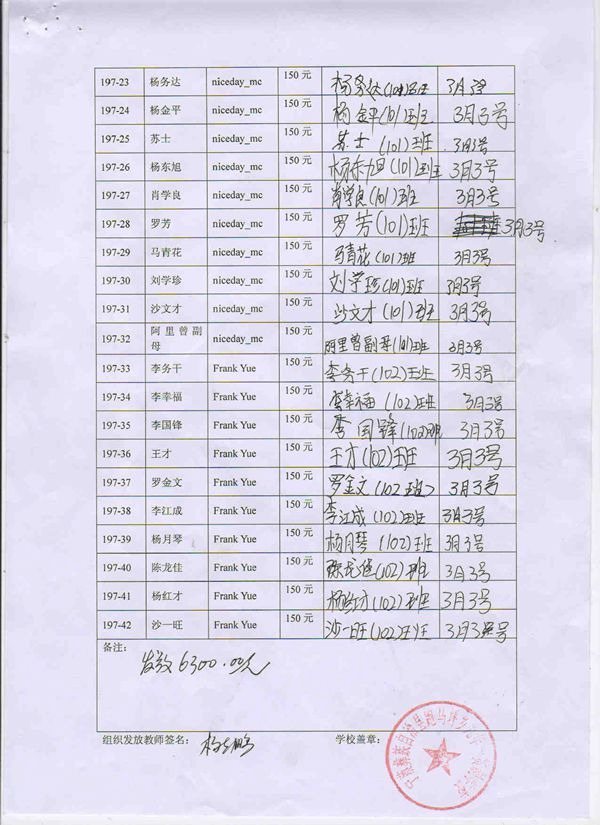 197-23 杨务达 niceday_mc 150 元 杨务达(101)班 3月3号
197-24 杨金平 niceday_mc 150 元 杨金平(101)班 3月3号
197-25 苏士 niceday_mc 150 元 苏士(101)班 3月3号
197-26 杨东旭 niceday_mc 150 元 杨东旭(101)班 3月3号
197-27 肖学良 niceday_mc 150 元 肖学良(101)班 3月3号
197-28 罗芳 niceday_mc 150 元 罗芳(101)班 3月3号
197-29 马青花 niceday_mc 150 元 马青花(101)班 3月3号
197-30 刘学珍 niceday_mc 150 元 刘学珍(101)班 3月3号
197-31 沙文才 niceday_mc 150 元 沙文才(101)班 3月3号
197-32 阿里曾副母 niceday_mc 150元 里曾副母(101)班 3月3号
197-33 李务干 Frank Yue 150 元 李务干(102)班 3月3号
197-34 李幸福 Frank Yue 150 元 李幸福(102)班 3月3号
197-35 李国锋 Frank Yue 150 元 李国锋(102)班 3月3号
197-36 王才 Frank Yue 150 元 王才(102)班 3月3号
197-37 罗金文 Frank Yue 150 元 罗金文(102班) 3月3号
197-38 李江成 Frank Yue 150 元 李江成(102)班 3月3号
197-39 杨月琴 Frank Yue 150 元 杨月琴(102)班 3月3号
197-40 陈龙佳 Frank Yue 150 元 陈龙佳(102)班 3月3号
197-41 杨红才 Frank Yue 150 元 杨红才(102)班 3月3号
197-42 沙一旺 Frank Yue 150 元 沙一旺(102)班 3月3号
备注：
发放6300.00元
组织发放教师签名： 学校盖章：